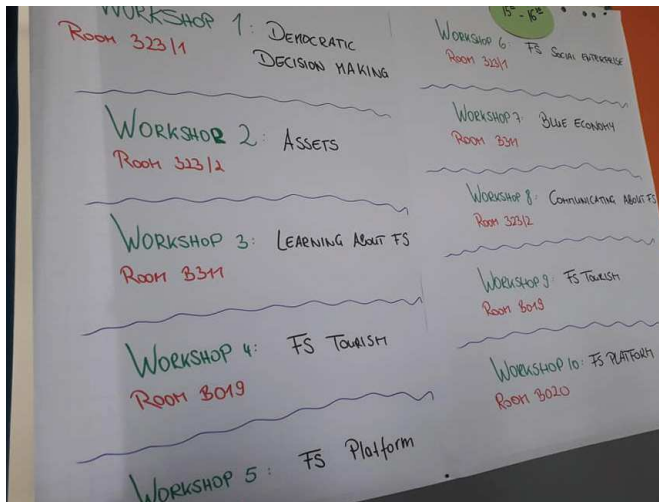 WORKSHOP 1: DEMOCRATIC
DECISION MAKING
ROOM 323/1
WORKSHOP 2: ASSETS
ROOM 323/2
WORKSHOP 3: LEARNING ABOUT FS
ROOM B311
WORKSHOP 4: FS TOURISM
ROOM B019
WORKSHOP 5: FS Platform
15 - 16
WORKSHOP 6: FS SOCIAL ENTERPRISE
ROOM 323/1
WORKSHOP 7: BLUE ECONOMY
ROOM B311
WORKSHOP 8: COMMUNICATING ABOUT FS
ROOM 323/2
WORKSHOP 9: FS TOURISM
ROOM B019
WORKSHOP 10: FS PLATFORM
ROOM B020